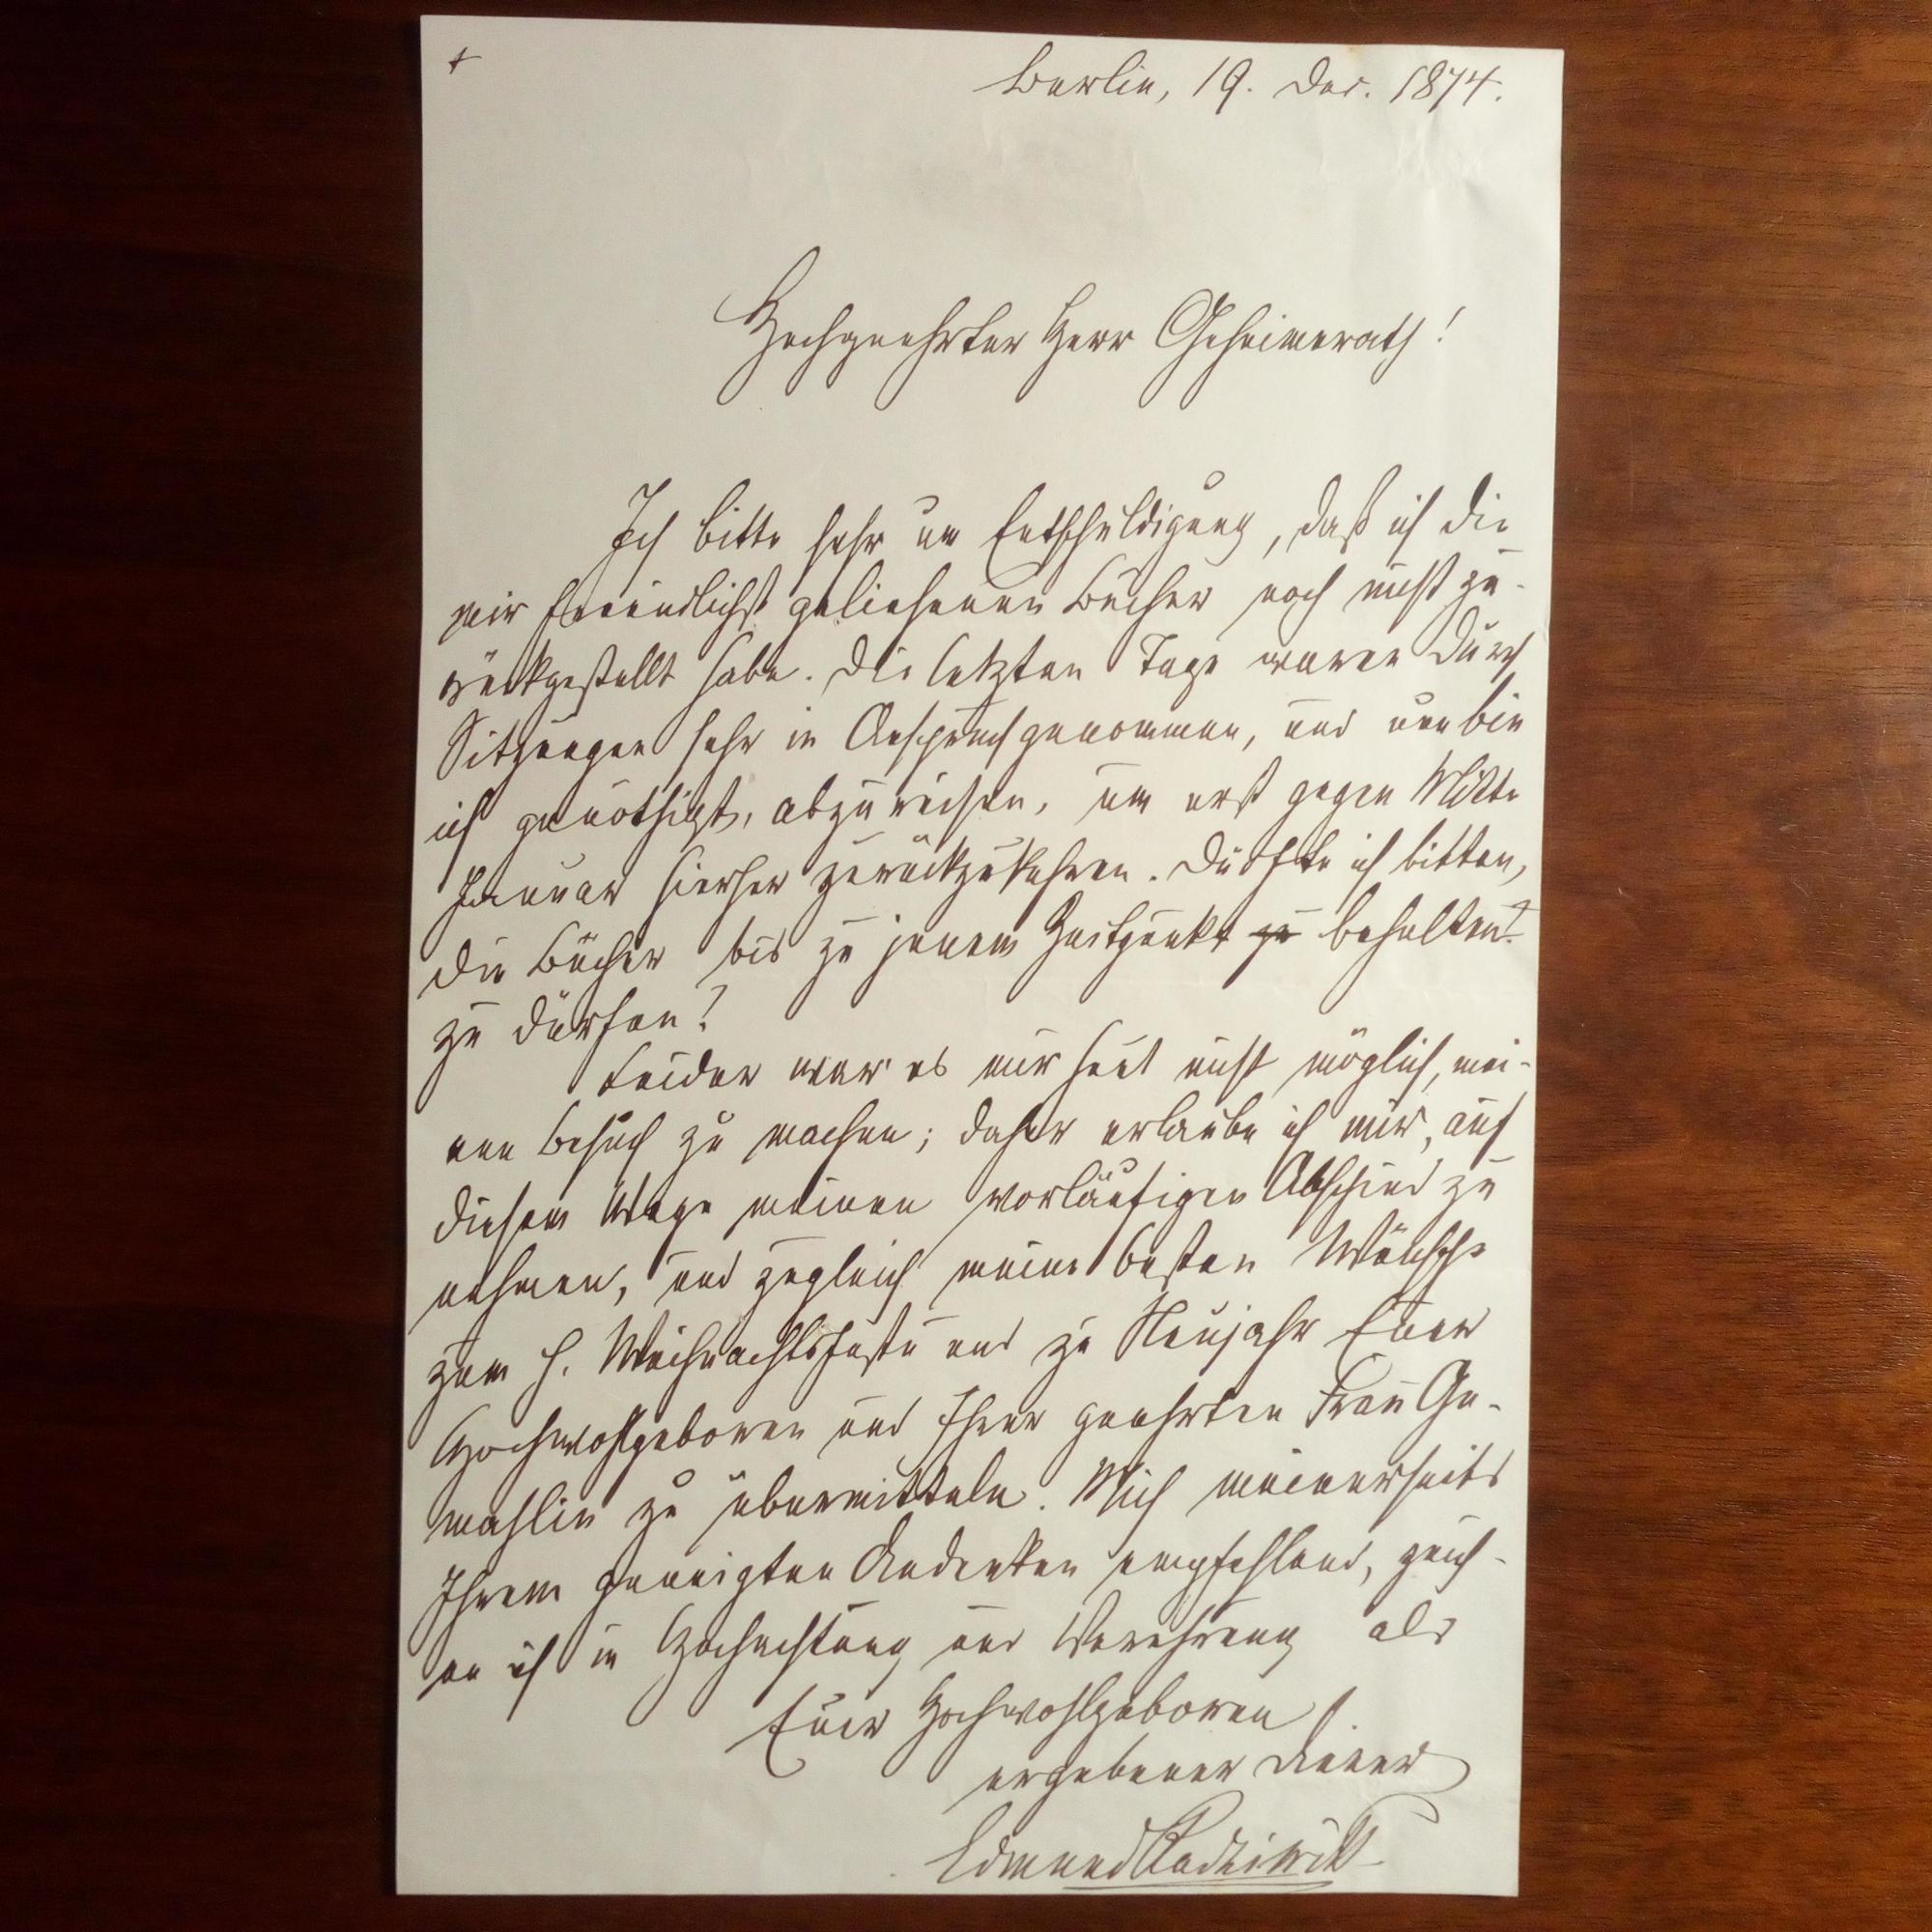 +
Berlin, 19. Dec. 1874.
Hochgeehrter Herr Geheimerath!
Ich bitte sehr um Entschuldigung, daß ich die
mir freundlichst geliehenen Bücher noch nicht zu-
rückgestellt habe. Die letzten Tage waren durch
Sitzungen sehr in Anspruch genommen, und nun bin
ich genöthigt, abzureisen, um erst gegen Mitte
Januar hierher zurückzukehren. Dürfte ich bitten,
die Bücher bis zu jenem Zeitpunkt zu behalten?
zu dürfen?
Leider war es mir heut nicht möglich, mei-
nen Besuch zu machen; daher erlaube ich mir, auf
diesem Wege meinen vorläufigen Abschied zu
nehmen, und zugleich meine besten Wünsche
zum h. Weihnachtsfeste und zu Neujahr Euer
Hochwohlgeboren und Ihrer geehrten Frau Ge-
mahlin zu übermitteln. Mich meinerseits
Ihrem geneigten Andenken empfehlend, zeich-
ne ich in Hochachtung und Verehrung als
Euer Hochwohlgeboren
ergebener Diener
Edmund Radziwill